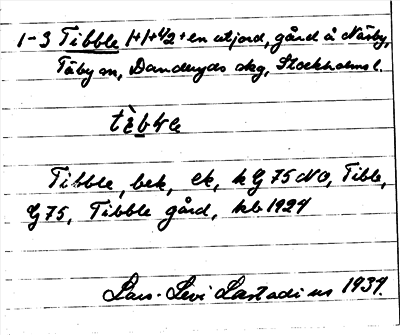 1-3 Tibble 1+1+1/2+en utjord, gård å Näsby,
Täby sn, Danderyds skg, Stockholms l.
Tibble, bek, ek, k G 75 NO, Tible,
G 75, Tibble gård, kb 1924
Lars-Levi Læstadius 1939.